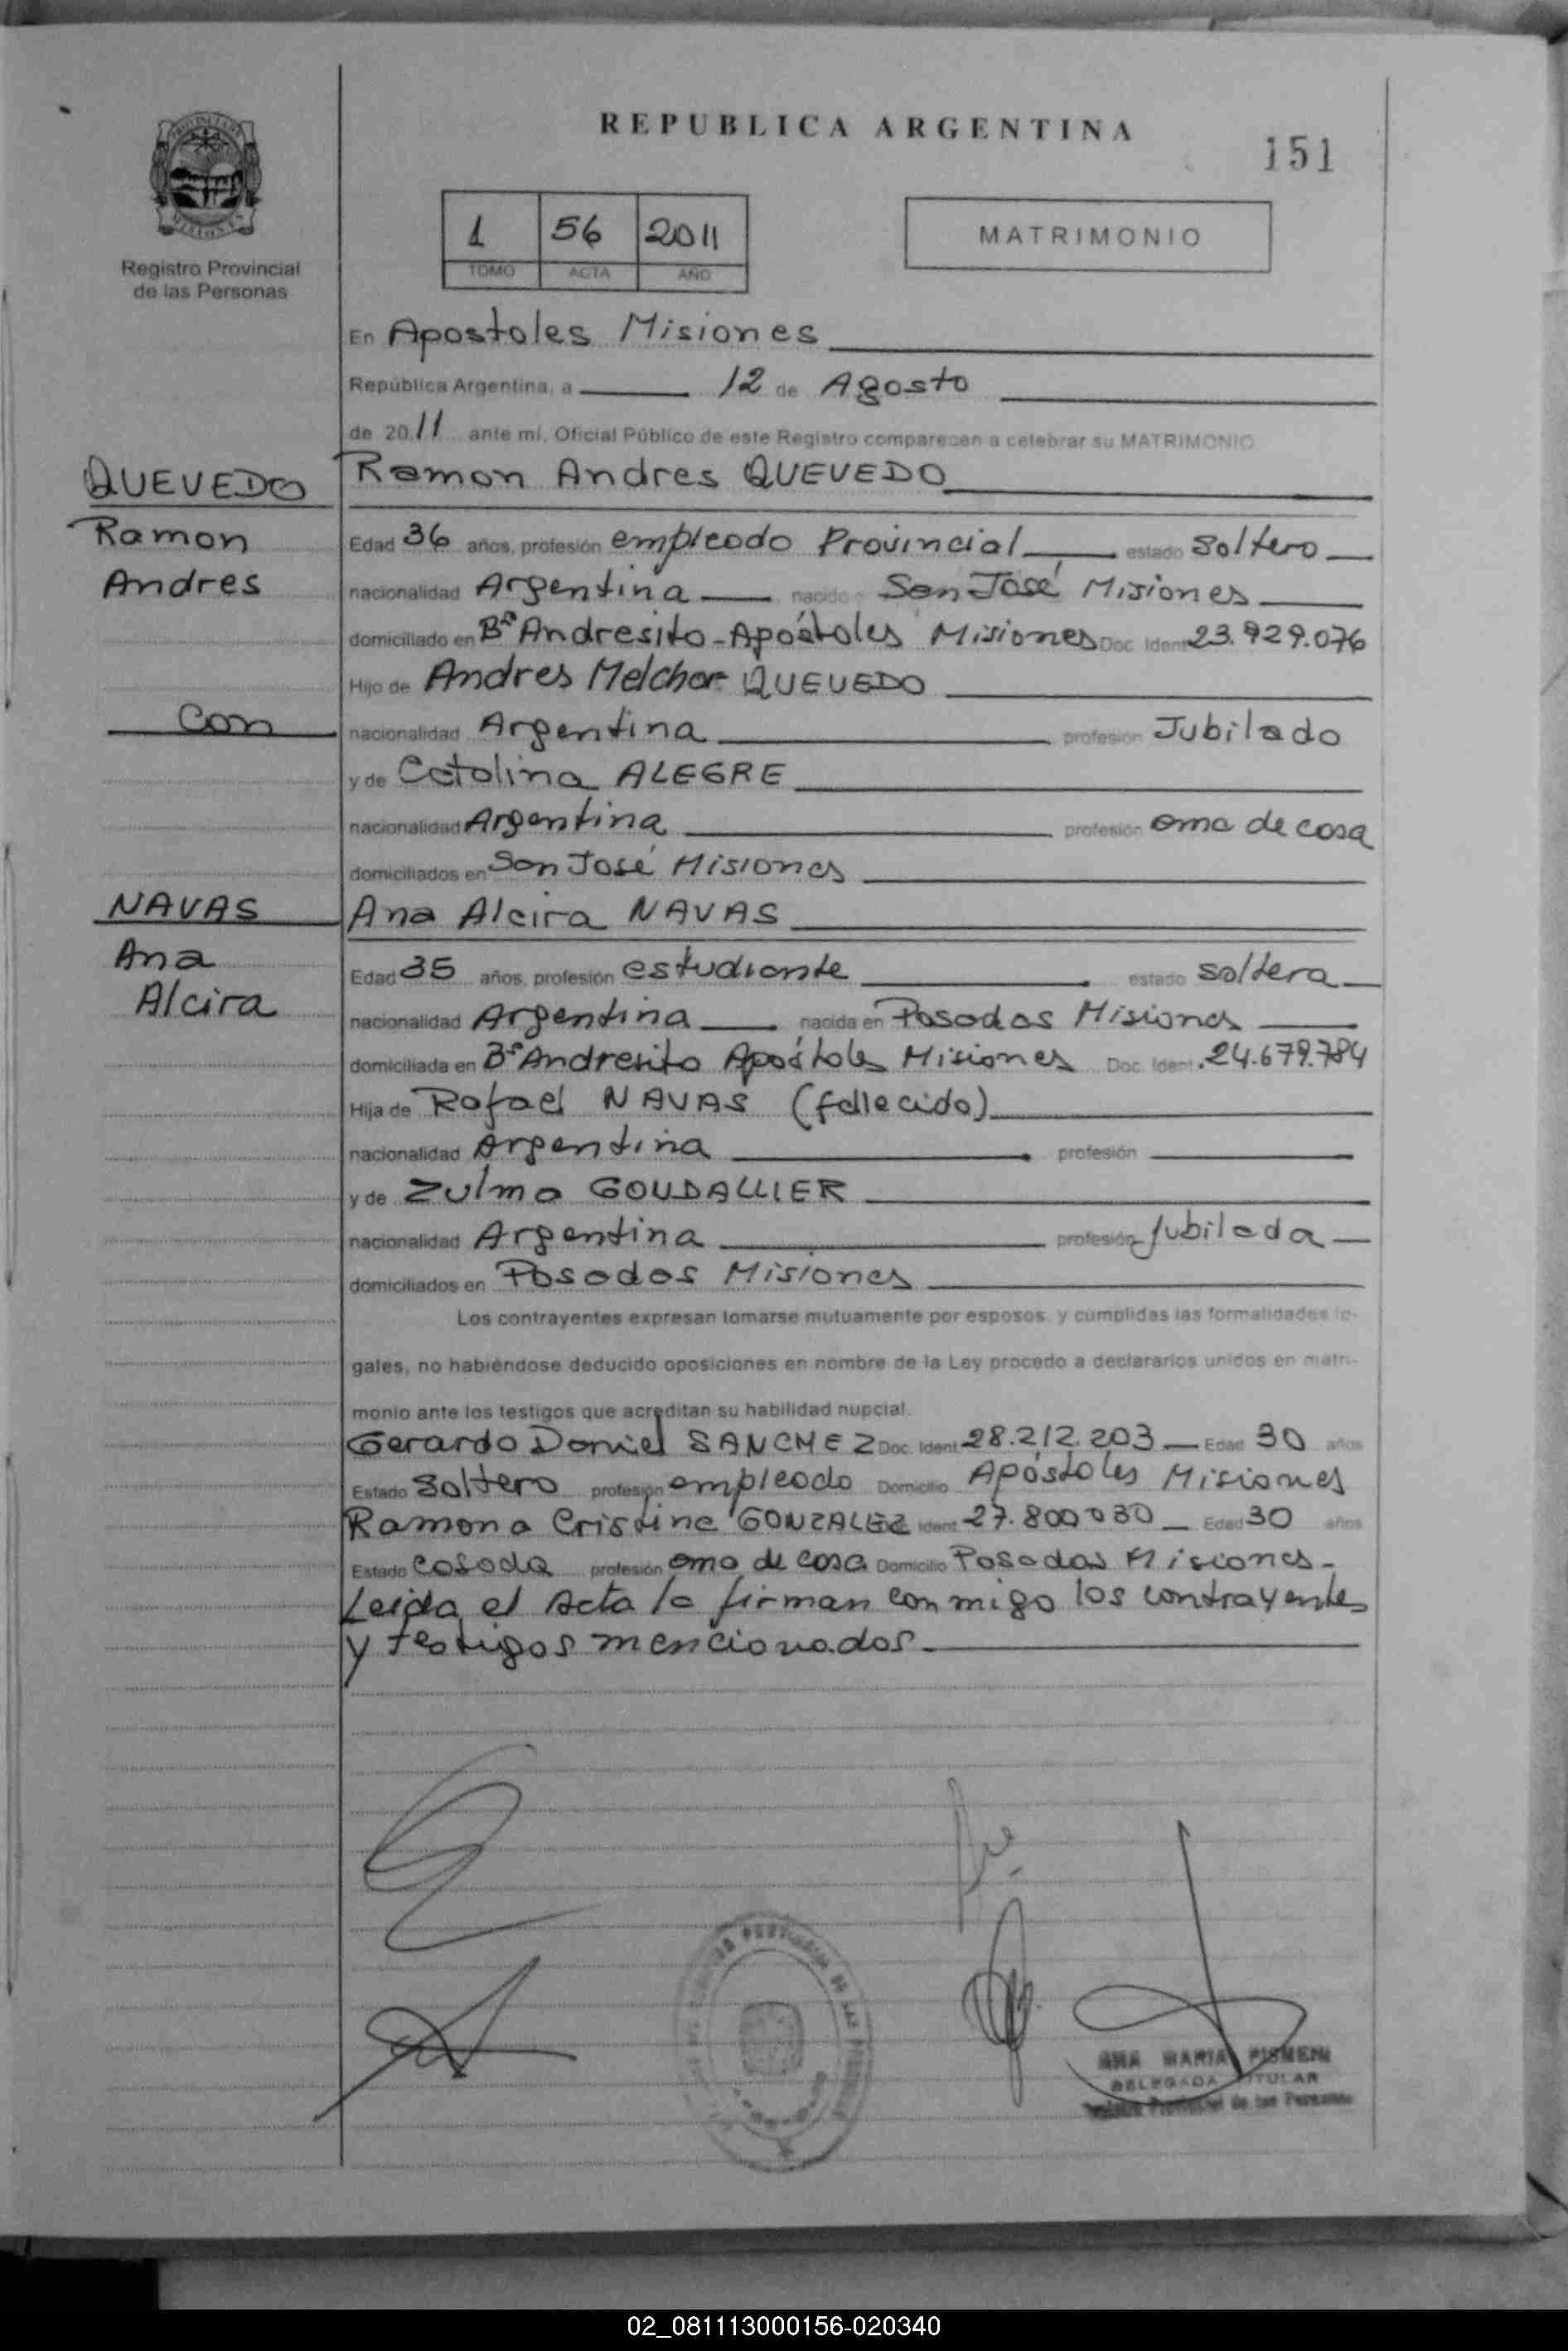 REPUBLICA ARGENTINA
151
1 56 2011
TOMO ACTA AÑO
MATRIMONIO
Registro Provincial
de las Personas
En Apostoles Misiones
República Argentina, a 12 de Agosto
de 2011 ante mí, Oficial Público de este Registro comparecen a celebrar su MATRIMONIO
QUEVEDO
Ramon Andres QUEVEDO
Ramon
Edad 36 años, profesión empleado Provincial estado soltero
Andres
nacionalidad Argentina nacido San José Misiones
domiciliado en Bº Andresito-Apóstoles Misiones Doc. Ident 23.929.076
Hijo de Andres Melchor QUEVEDO
Con
nacionalidad Argentina profesión Jubilado
y de Catalina ALEGRE
nacionalidad Argentina profesión ama de casa
domiciliados en San José Misiones
NAVAS
Ana Alcira NAVAS
Ana
Edad 35 años, profesión estudiante estado soltera
Alcira
nacionalidad Argentina nacida en Posadas Misiones
domiciliada en Bº Andresito Apóstoles Misiones Doc. Ident. 24.679.784
Hija de Rafael NAVAS (fallecido)
nacionalidad Argentina profesión
y de Zulma GOUDALLIER
nacionalidad Argentina profesión Jubilada
domiciliados en Posadas Misiones
Los contrayentes expresan tomarse mutuamente por esposos, y cumplidas las formalidades le-
gales, no habiéndose deducido oposiciones en nombre de la Ley procedo a declararlos unidos en matri-
monio ante los testigos que acreditan su habilidad nupcial.
Gerardo Daniel SANCHEZ Doc. Ident 28.212.203 Edad 30 años
Estado Soltero profesión empleado Domicilio Apóstoles Misiones
Ramona Cristina GONZALEZ Ident 27.800030 Edad 30 años
Estado Casada profesión ama de casa Domicilio Posadas Misiones-
Leida el Acta la firman conmigo los contrayentes
y testigos mencionados.
ANA MARIA
DELEGADA TITULAR
Provincial de las Personas
02_081113000156-020340